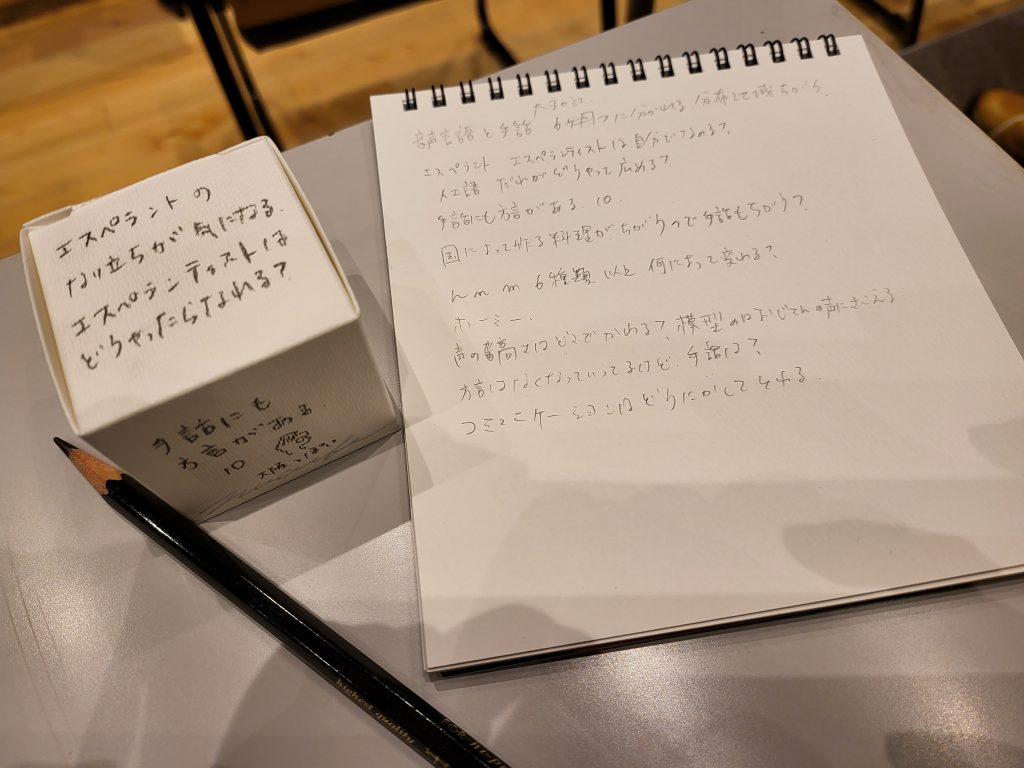 エスペラントの
なり立ちが気になる.
エスペランティストは
どうやったらなれる?
手話にも
方言がある
10
大阪っぽい
大まかに
音声言語と手話 6ヶ月 に分かれる 分布して ちがう.
エスペラント エスペランティストは自分でなのる?
人工語 だれがどうやって広める?
手話にも方言がある. 10.
国によって作る料理がちがうので手話もちがう?
h n m 6種類以上 何によって変わる?
ホーミー.
声の高さはどこでかわる? 模型の口 の声にきこえる
方言はなくなっていってるけど. 手話は?
コミュニケーションはどうにかしてとれる.
highest quality